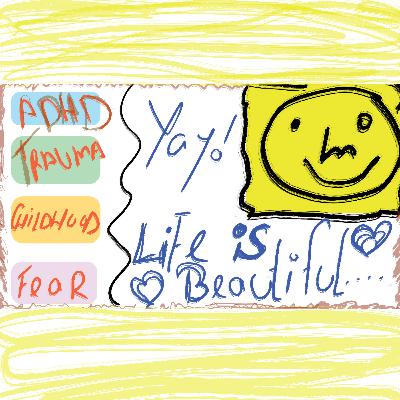 ADHD
TRAUMA
CHILDHOOD
FeaR
Yay!
LiFe is
Beautiful....